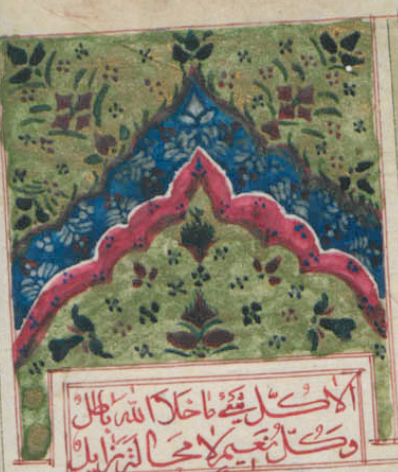 الا كلّ شيء ما خلا الله باطل
وكلّ نعيم لا محالة زايل